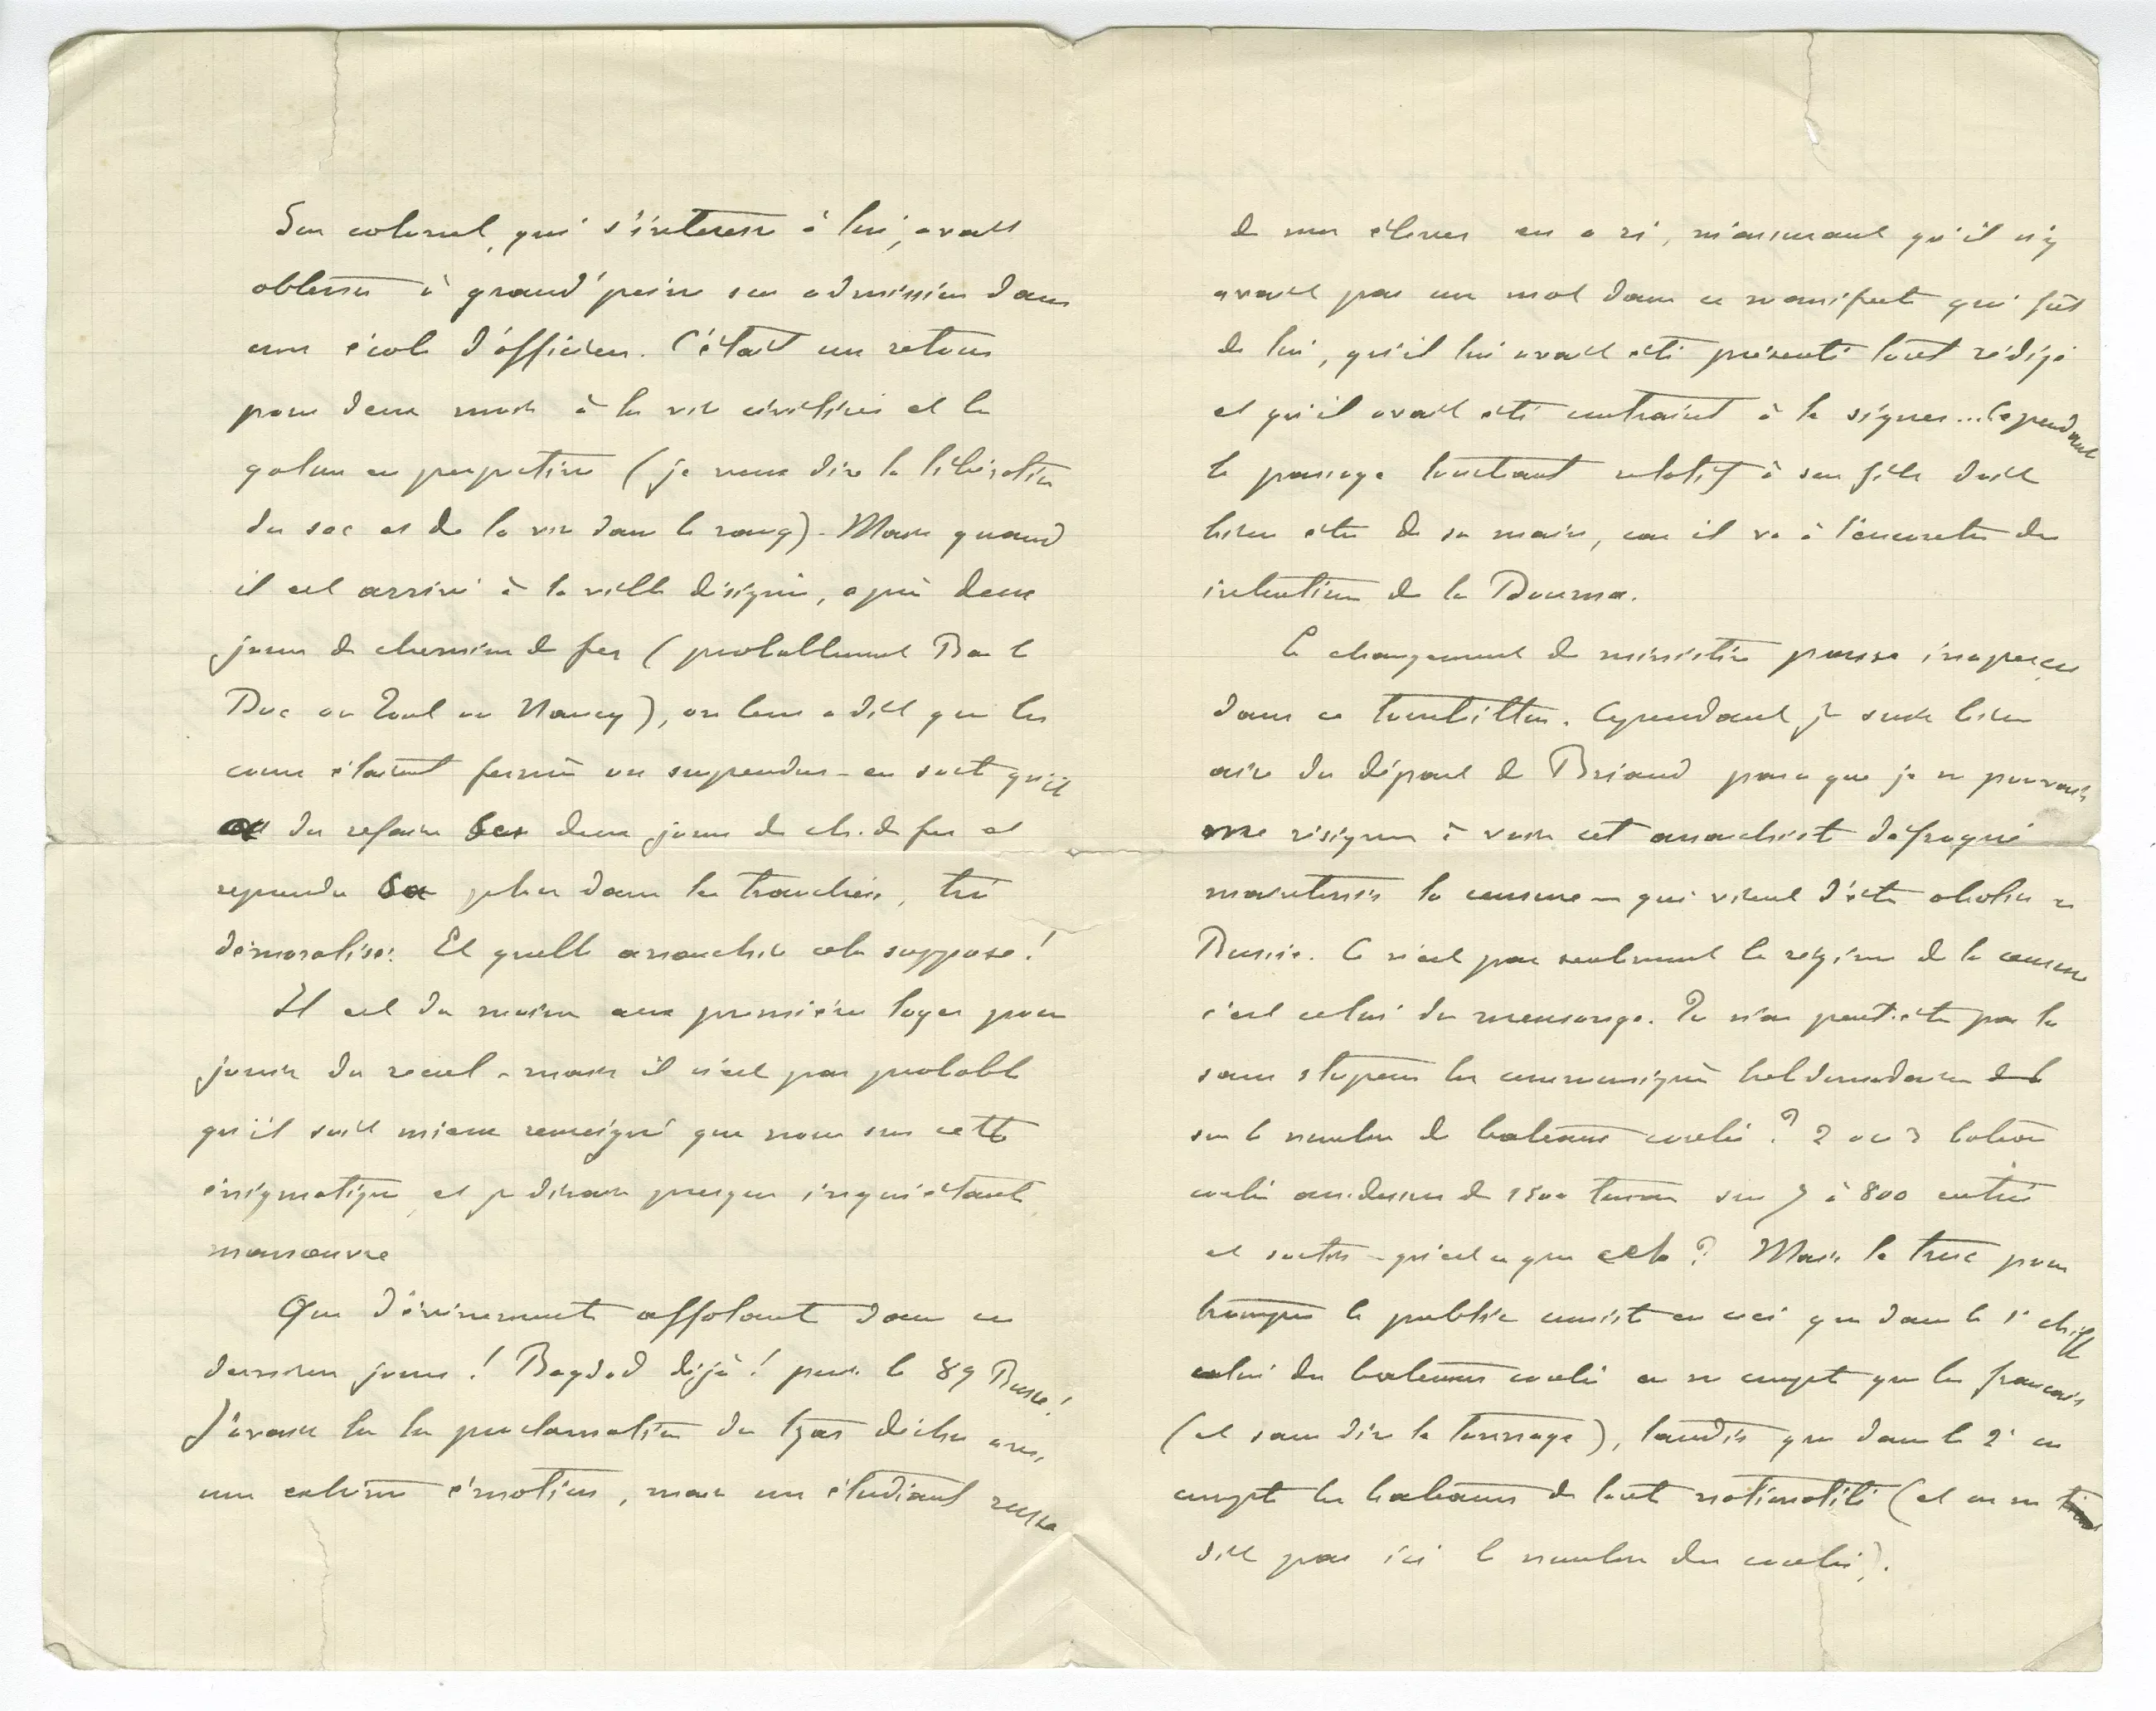 Son colonel, qui s'intéresse à lui, avait
obtenu à grand'peine son admission dans
une école d'officiers. C'était un retour
pour deux mois à la vie civilisée et le
galon en perspective (je veux dire la libération
du sac et de la vie dans le rang). Mais quand
il est arrivé à la ville désignée, après deux
jours de chemin de fer (probablement Bar le
Duc ou Toul ou Nancy), on leur a dit que les
cours étaient fermés ou suspendus - en sorte qu'il
a dû refaire ses deux jours de ch. de fer et
reprendre sa place dans les tranchées, très
démoralisé. Et quelle anarchie cela suppose!
Il est du moins aux premières loges pour
jouir du recul - mais il n'est pas probable
qu'il soit mieux renseigné que nous sur cette
énigmatique et je dirais presque inquiétante
manœuvre
Que d'événements affolants dans ces
derniers jours! Bagdad déjà! puis le 89 Russe!
J'avais lu la proclamation du tzar déchu avec
une extrême émotion, mais un étudiant russe
de mes élèves en a ri, m'assurant qu'il n'y
avait pas un mot dans ce manifeste qui fût
de lui, qu'il lui avait été présenté tout rédigé
et qu'il avait été contraint à le signer... Cependant
le passage touchant relatif à son fils doit
bien être de sa main, car il va à l'encontre des
intentions de la Douma.
Le changement de ministère passe inaperçu
dans ce tourbillon. Cependant je suis bien
aise du départ de Briand parce que je ne pouvais
me résigner à voir cet anarchiste défroqué
maintenir la censure - qui vient d'être abolie en
Russie. Ce n'est pas seulement le régime de la censure
c'est celui du mensonge. Tu n'as peut-être pas lu
sans stupeur les communiqués hebdomadaires
sur le nombre de bateaux coulés? 2 ou 3 bateaux
coulés au-dessus de 1500 tonnes sur 7 à 800 entrés
et sortis - qu'est-ce que cela? Mais le truc pour
tromper le public consiste en ceci que dans le 1er chiffre
celui des bateaux coulés on ne compte que les français
(et sans dire le tonnage), tandis que dans le 2e on
compte les bateaux de toute nationalité (et on ne
dit pas ici le nombre des coulés).